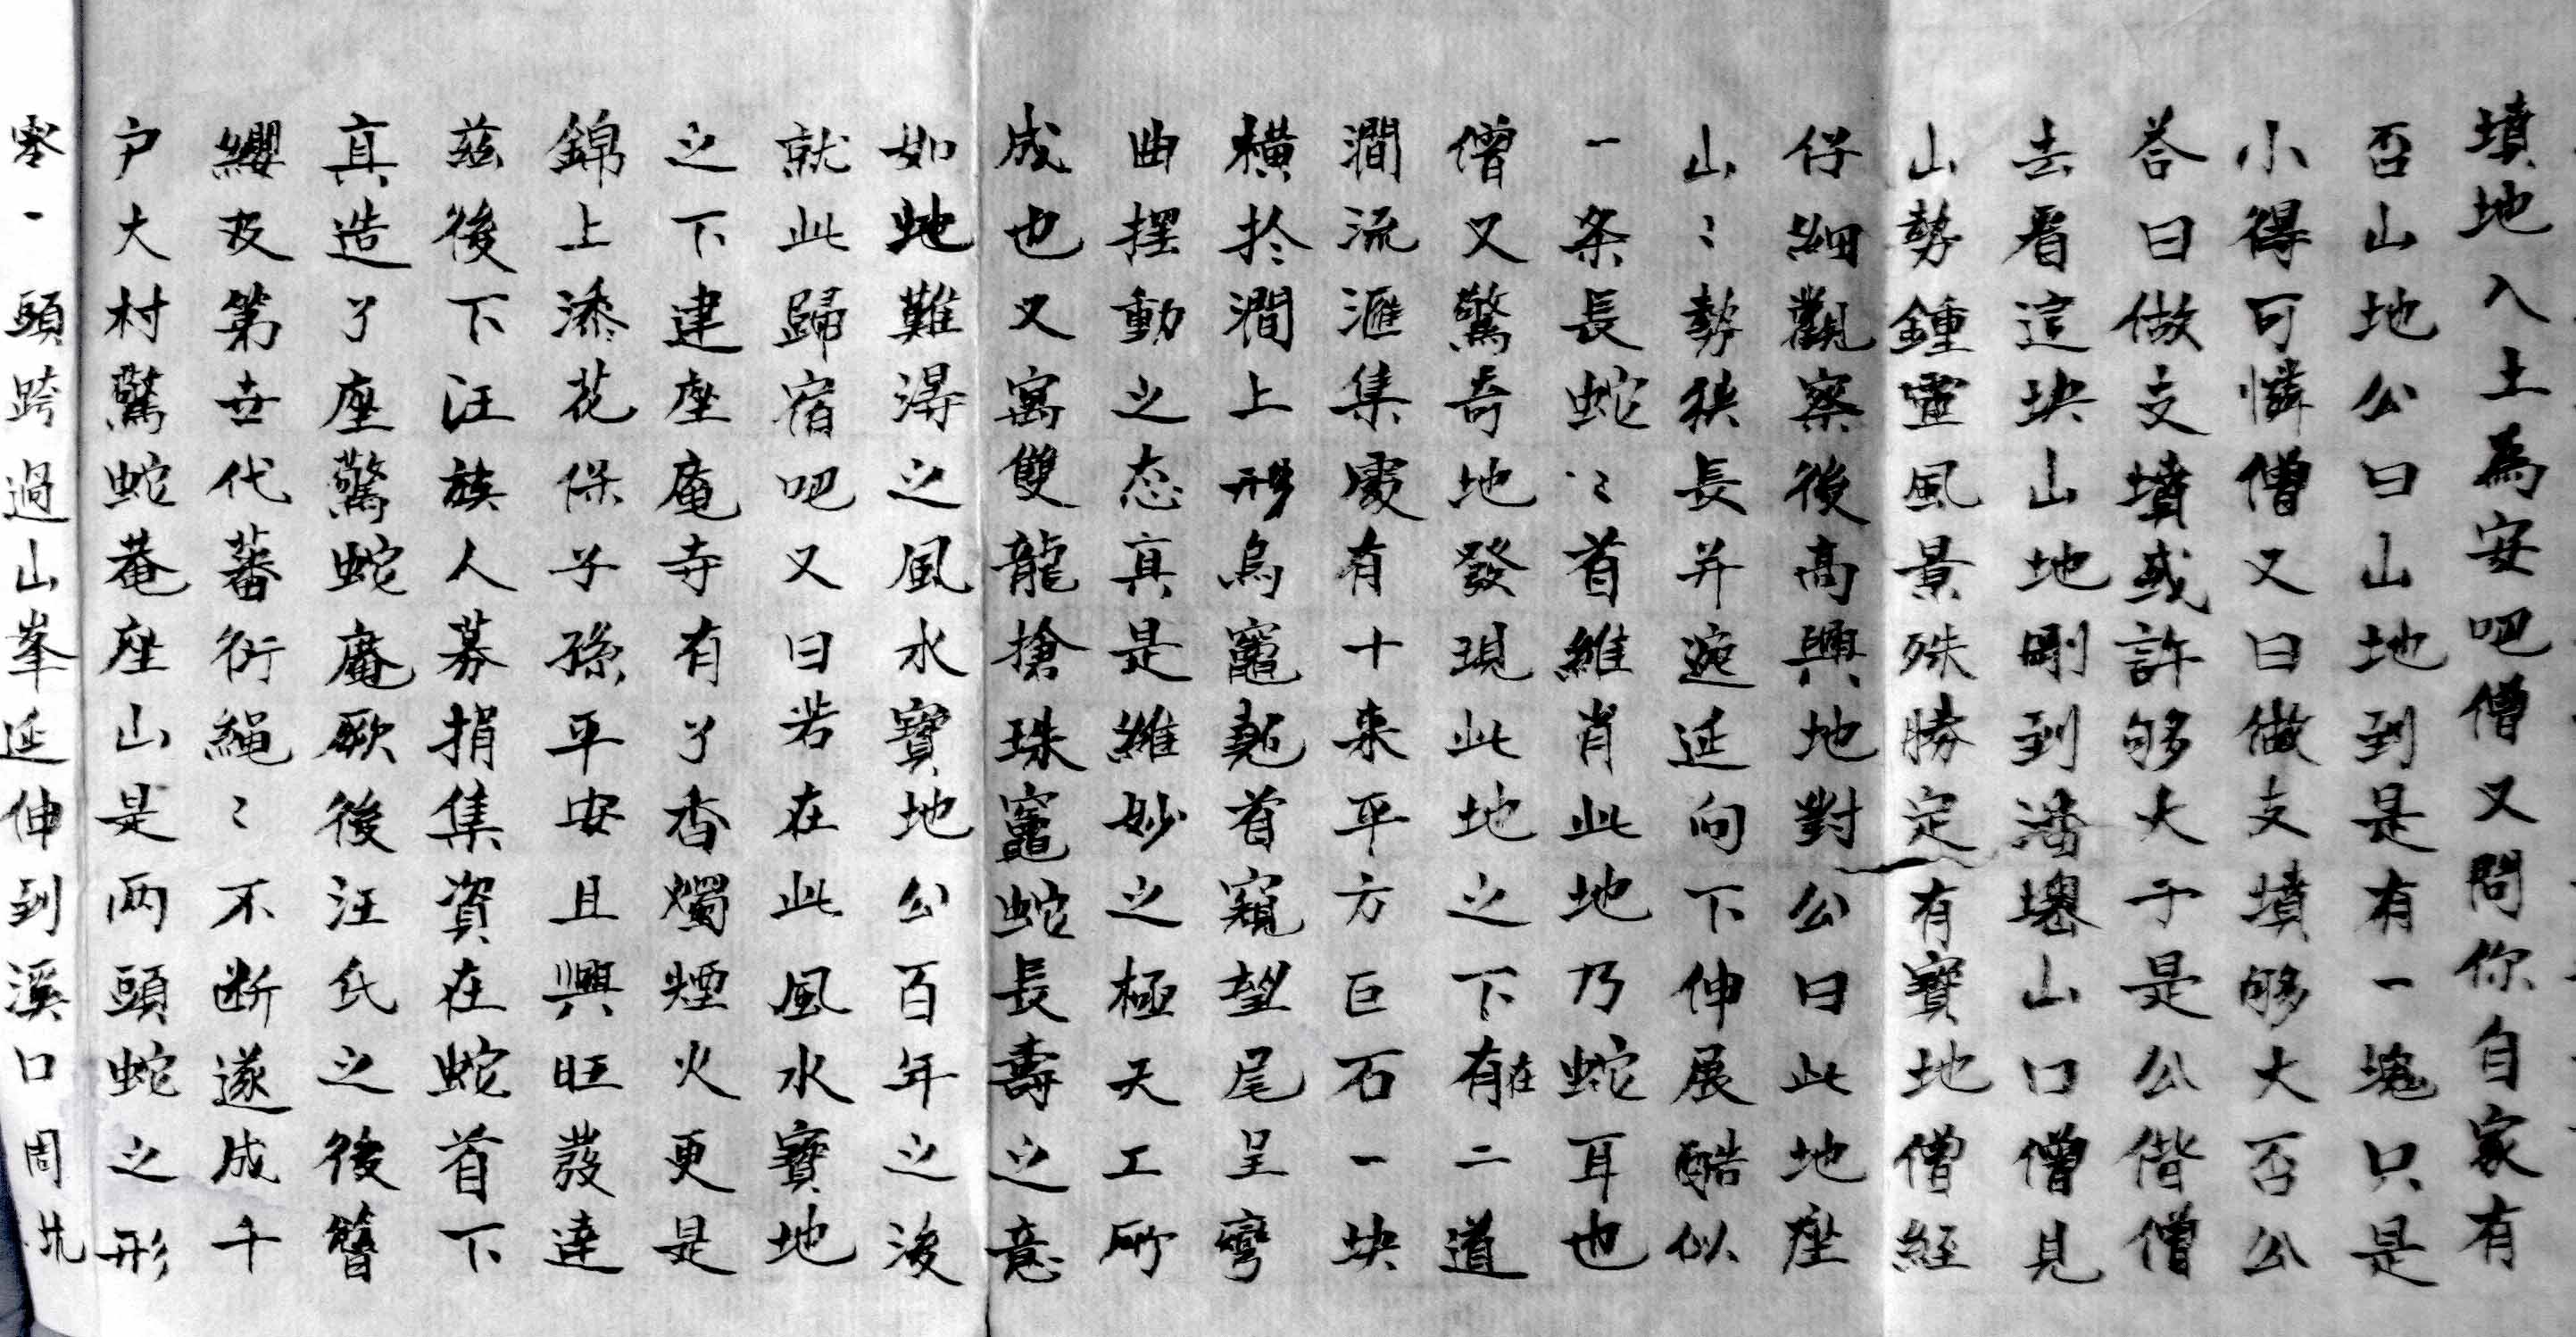 墳地入土為安吧僧又問你自家有
否山地公曰山地到是有一塊只是
小得可憐僧又曰做支墳够大否公
答曰做支墳或許够大于是公偕僧
去看這块山地剛到潘塢山口僧見
山勢鍾靈風景殊勝定有寶地僧經
仔細觀察後高興地對公曰此地座
山〻勢狹長并逶延向下伸展酷似
一条長蛇〻首維肖此地乃蛇耳也
僧又驚奇地發現此地之下有在二道
澗流滙集處有十来平方巨石一块
橫於澗上形烏龜翹首窺望尾呈彎
曲擺動之态真是維妙之極天工所
成也又寓雙龍搶珠龜蛇長壽之意
如此難得之風水寶地公百年之後
就此歸宿吧又曰若在此風水寶地
之下建座庵寺有了香燭煙火更是
錦上添花保子孫平安且興旺發達
茲後下汪族人募捐集資在蛇首下
真造了座驚蛇庵厥後汪氏之後簪
纓及第世代蕃衍繩〻不断遂成千
户大村驚蛇菴座山是两頭蛇之形
零一頭跨過山峯延伸到溪口周坑